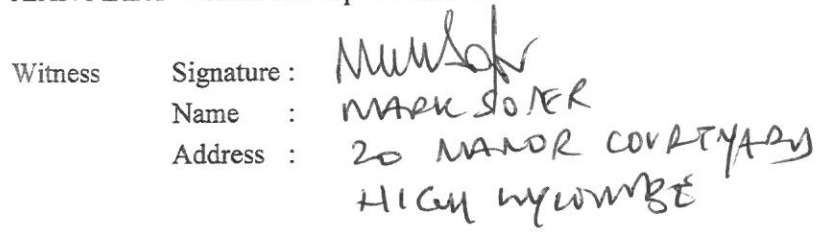 Witness Signature :
Name : MARK
Address : 20 MANOR COURTYARD
HIGH WYCOMBE